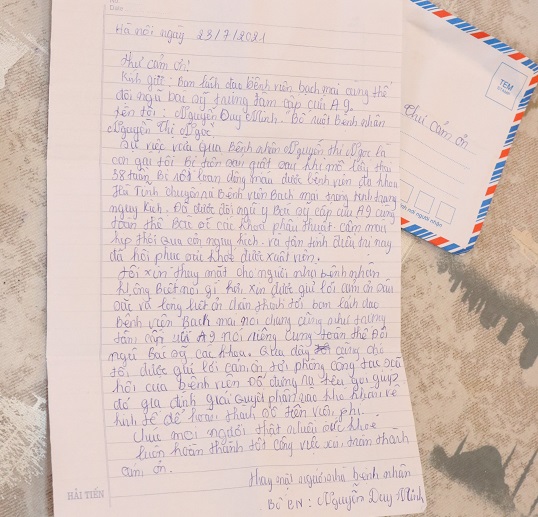 Date
Hà nội ngày 23/7/2021
Thư cảm ơn!
Kính gửi: Ban lãnh đạo bệnh viện bạch mai cùng thể
đội ngũ bác sỹ trung tâm cấp cứu A9.
tên tôi: Nguyễn Duy Minh. Bố ruột Bệnh nhân
Nguyễn Thị Ngọc.
Sự việc vừa qua Bệnh nhân Nguyễn thị Ngọc là
con gái tôi Bị tiền sản giật sau khi mổ lấy thai
38 tuần, Bị rối loạn đông máu được bệnh viện đa khoa
Hà Tĩnh chuyển ra Bệnh viện Bạch mai trong tình trạng
nguy kịch. Đã được đội ngũ y Bác sỹ cấp cứu A9 cùng
toàn thể Bác sỹ các khoa phẫu thuật cầm máu
kịp thời qua cơn nguy kịch. và tận tình điều trị nay
đã hồi phục sức khoẻ được xuất viện.
Tôi xin thay mặt cho người nhà bệnh nhân
không Biết nói gì hơi, xin được gửi lời cảm ơn sâu
sắc và lòng biết ơn chân thành tới ban lãnh đạo
Bệnh viện Bạch mai nói chung cũng như trung
tâm cấp cứu A9 nói riêng Cùng toàn thể Đội
ngũ Bác sỹ các khoa. Qua đây cũng cho
tôi được gửi lời cảm ơn tới phòng công tác xã
hội của bệnh viện Đã đứng ra kêu gọi giúp
đỡ gia đình giải quyết phần nào khó khăn về
kinh tế để hoàn thành số tiền viện phí.
Chúc mọi người thật nhiều sức khoẻ
luôn hoàn thành tốt công việc xin trân thành
cảm ơn.
Thay mặt người nhà bệnh nhân
Bố BN: Nguyễn Duy Minh
HẢI TIẾN
TEM
Thư cảm ơn